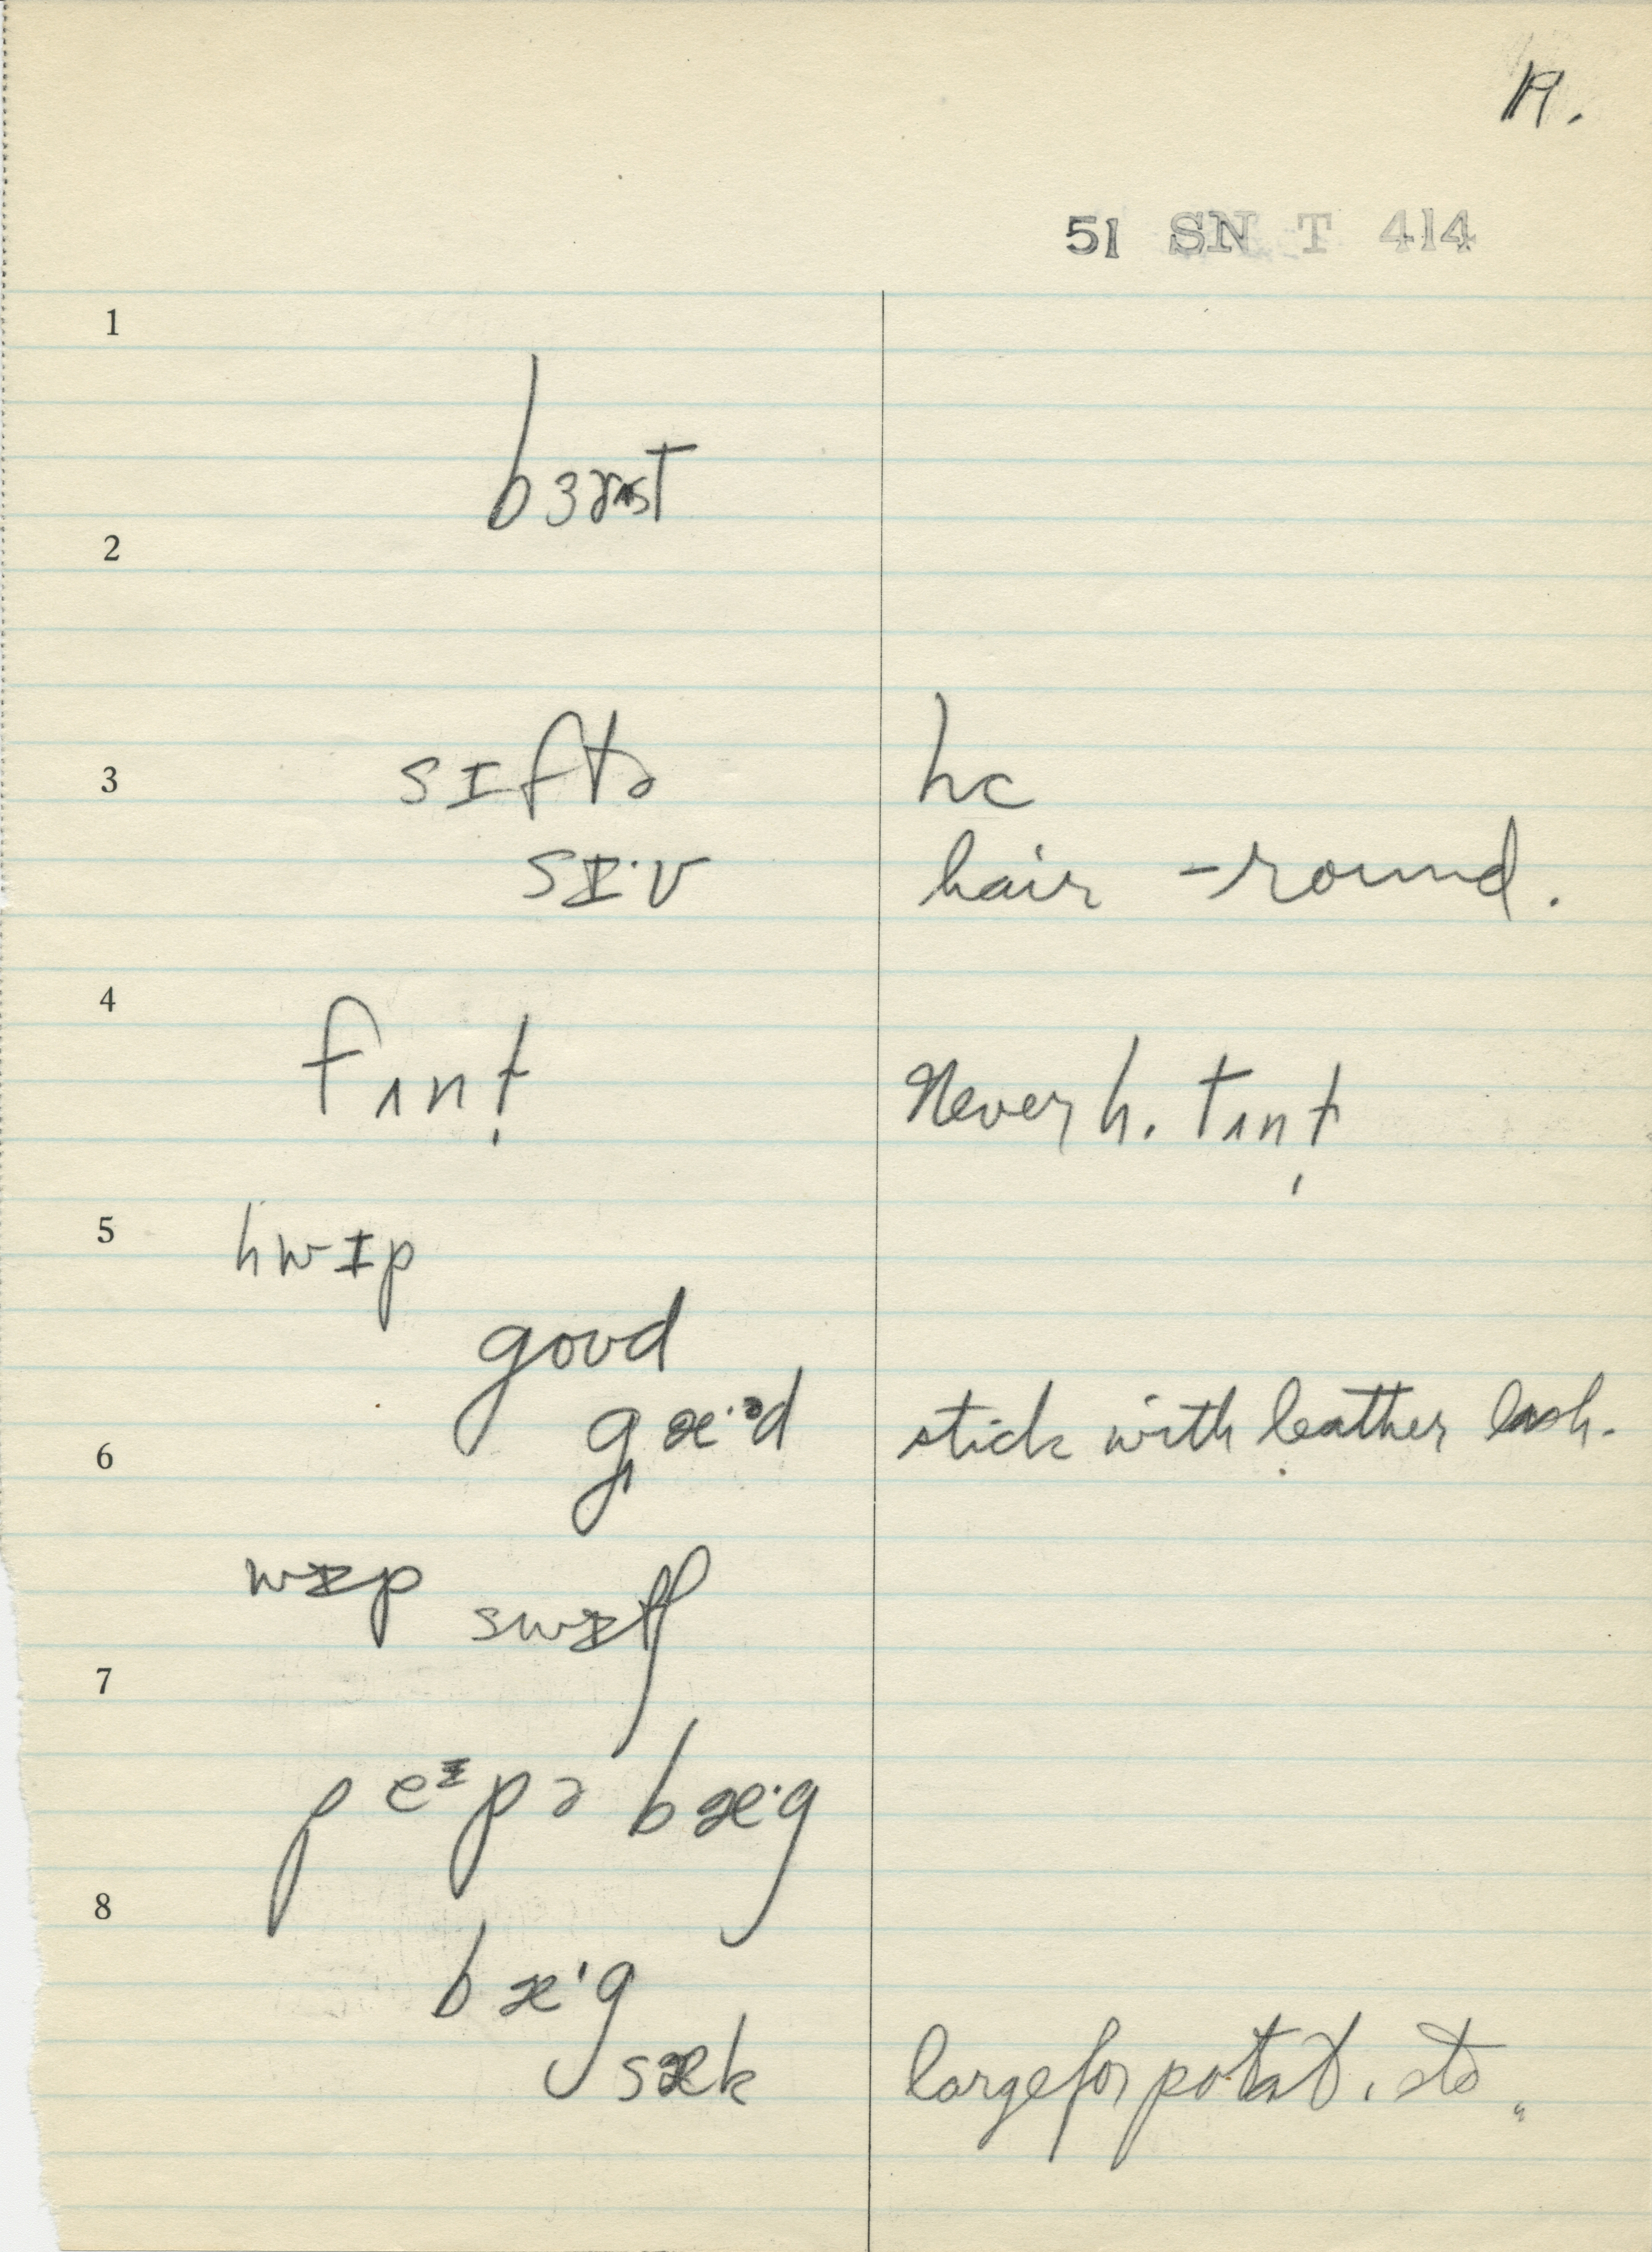 19.
51 SN T 414
1
2
bɜɪst
3
sɪftə hc
sɪ·v hair -round.
4
fʌnt̩ Never h. tʌnt̩
5
hwɪp
goʊd
6
gæ·ᵊd stick with leather lash.
wɪp
swɪtʃ
7
peᶦpə bæ·g
8
bæ·g
sæk large for potat. etc.